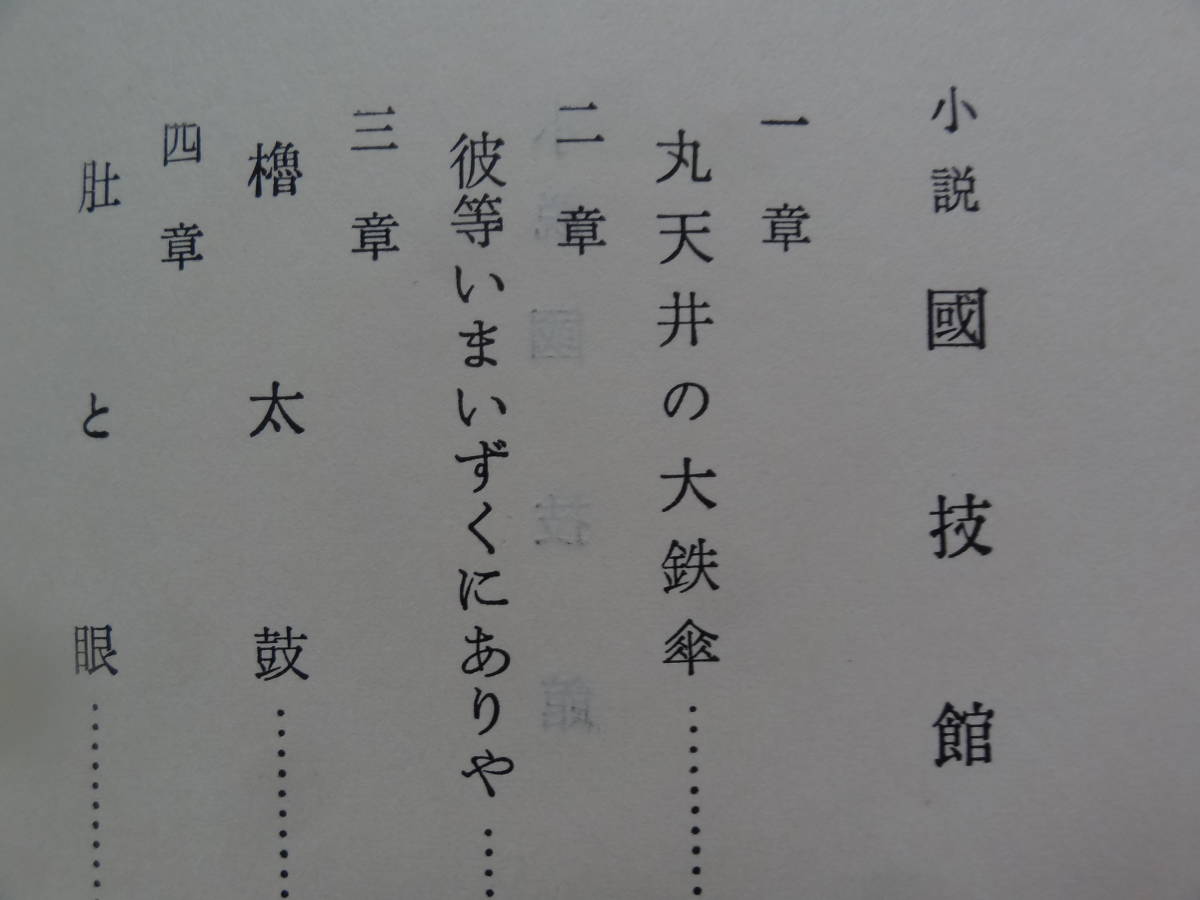 小説 國技館
一章
丸天井の大鉄傘……………
二章
彼等いまいずくにありや……
三章
櫓太鼓……………
四章
肚と眼……………